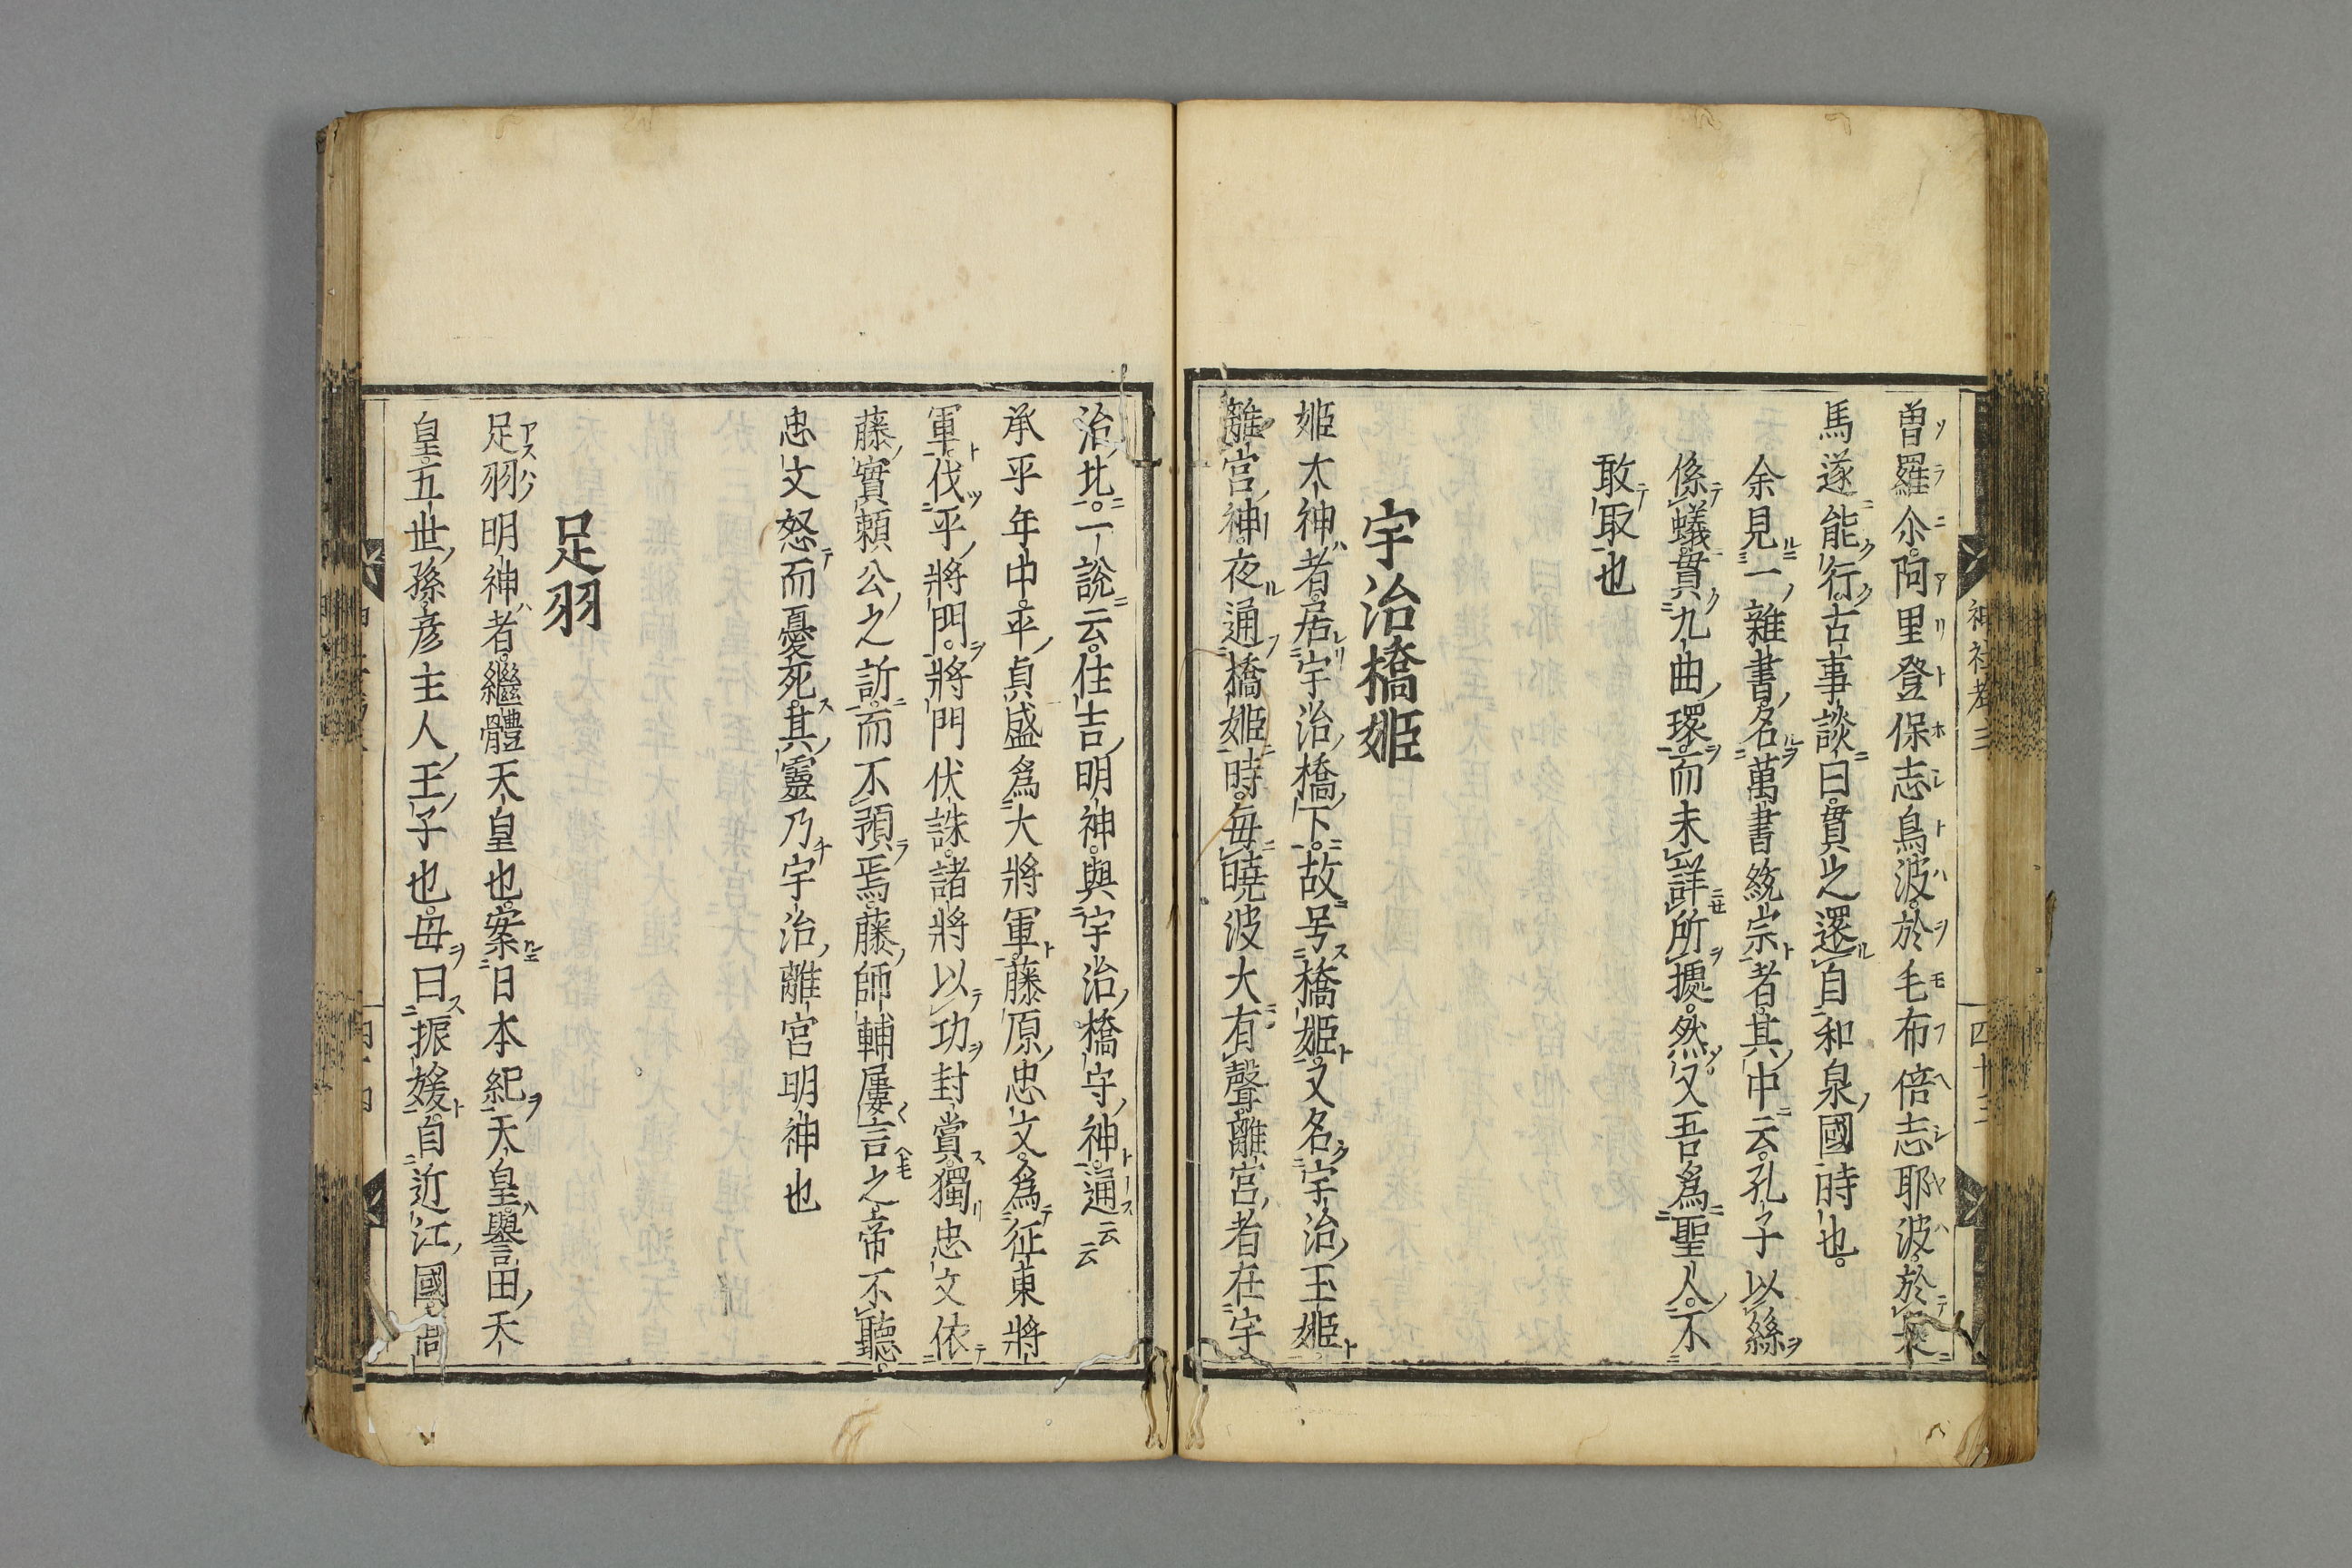 曽羅尒阿里登保志鳥波於毛布倍志耶波於
馬遂能行古事談曰貫之還自和泉國時也
余見一雜書名萬書統宗者其中云孔子以絲
係蟻貫九曲環而未詳所據然又吾爲聖人不
敢取也
宇治橋姫
姫大神者居宇治橋下故号橋姫又名宇治玉姫
離宮神夜通橋姫時毎曉波大有聲離宮者在宇
神社考三
四十三
治北一說云住吉明神與宇治橋守神通云云
承平年中平貞盛爲大將軍藤原忠文爲征東將
軍伐平將門將門伏誅諸將以功封賞獨忠文依
藤實賴公之訴而不預焉藤師輔屢言之帝不聽
忠文怒而憂死其靈乃宇治離宮明神也
足羽
足羽明神者繼體天皇也案日本紀天皇譽田天
皇五世孫彦主人王子也毋曰振媛自近江國高